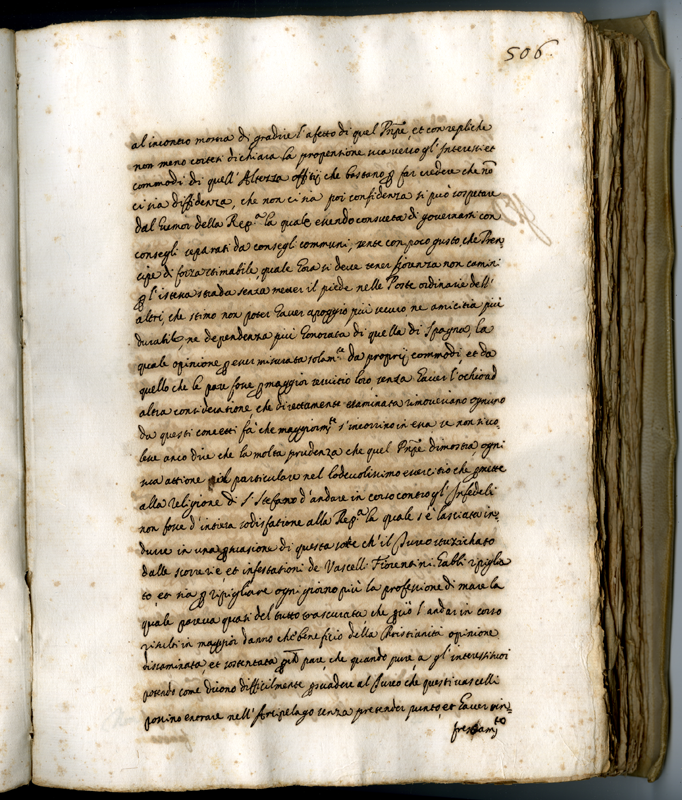 506.
al incontro mostra di gradire l'afetto di quel Pnpe, et con repliche
non meno cortesi dichiara la propensione sua verso gl'Interessi et
commodi di quell'Altezza offitij che bastano p far credere che nõ
ci sia diffidenza, che non ci sia poi confidenza si può sospetare
dal humor della Rep.a la quale essendo consueta di governarsi con
consegli separati da consegli communi, sente con poco gusto, che Pren
cipe di forza stimabile, quale hora si deve tener Fiorenza non camini
p l'istessa strada senza metter il piede nelle Poste ordinarie dell'
altri, che stimo non poter haver apoggio più sicuro ne amicitia più
durabile, ne dependenza più honorata di quella di Spagna, la
quale opinione p esser misurata solam.te da proprij commodi, et da
quello che le pare fosse p maggior servicio loro senza haver l'ochio ad
altra consideratione, che direttamente esaminata rimoveriano ognuno
da questi concetti fà che maggiorm.te s'incorrino in essa se non si vo
lesse anco dire che la molta prudenza che quel Pnpe dimostra ogni
sua attione più particulare nel lodevolissimo essercitio che pmette
alla religione di S. Stefano d'andare in corso contro gl'Infedeli
non fosse d'intiera sodisfatione alla Rep.a la quale s'è lasciata in
durre in una psuasione di questa sorte ch'il Turco stuzzichato
dalle scorrerie et infestationi de Vascelli Fiorentini habbi ripiglia
to, et sia p ripigliare ogni giorno più la professione di mare la
quale pareva quasi del tutto trascurata che pciò l'andar in corso
risulti in maggior danno che beneficio della Christianità opinione
disseminata et sostentata pchè pare, che quando pure a gl'interessi suoi
potendo come dicono difficilmente psuadere al Turco che questi vascelli
possino entrare nell'Arcipelago senza pretender punto, et haver rin=
frescam.to